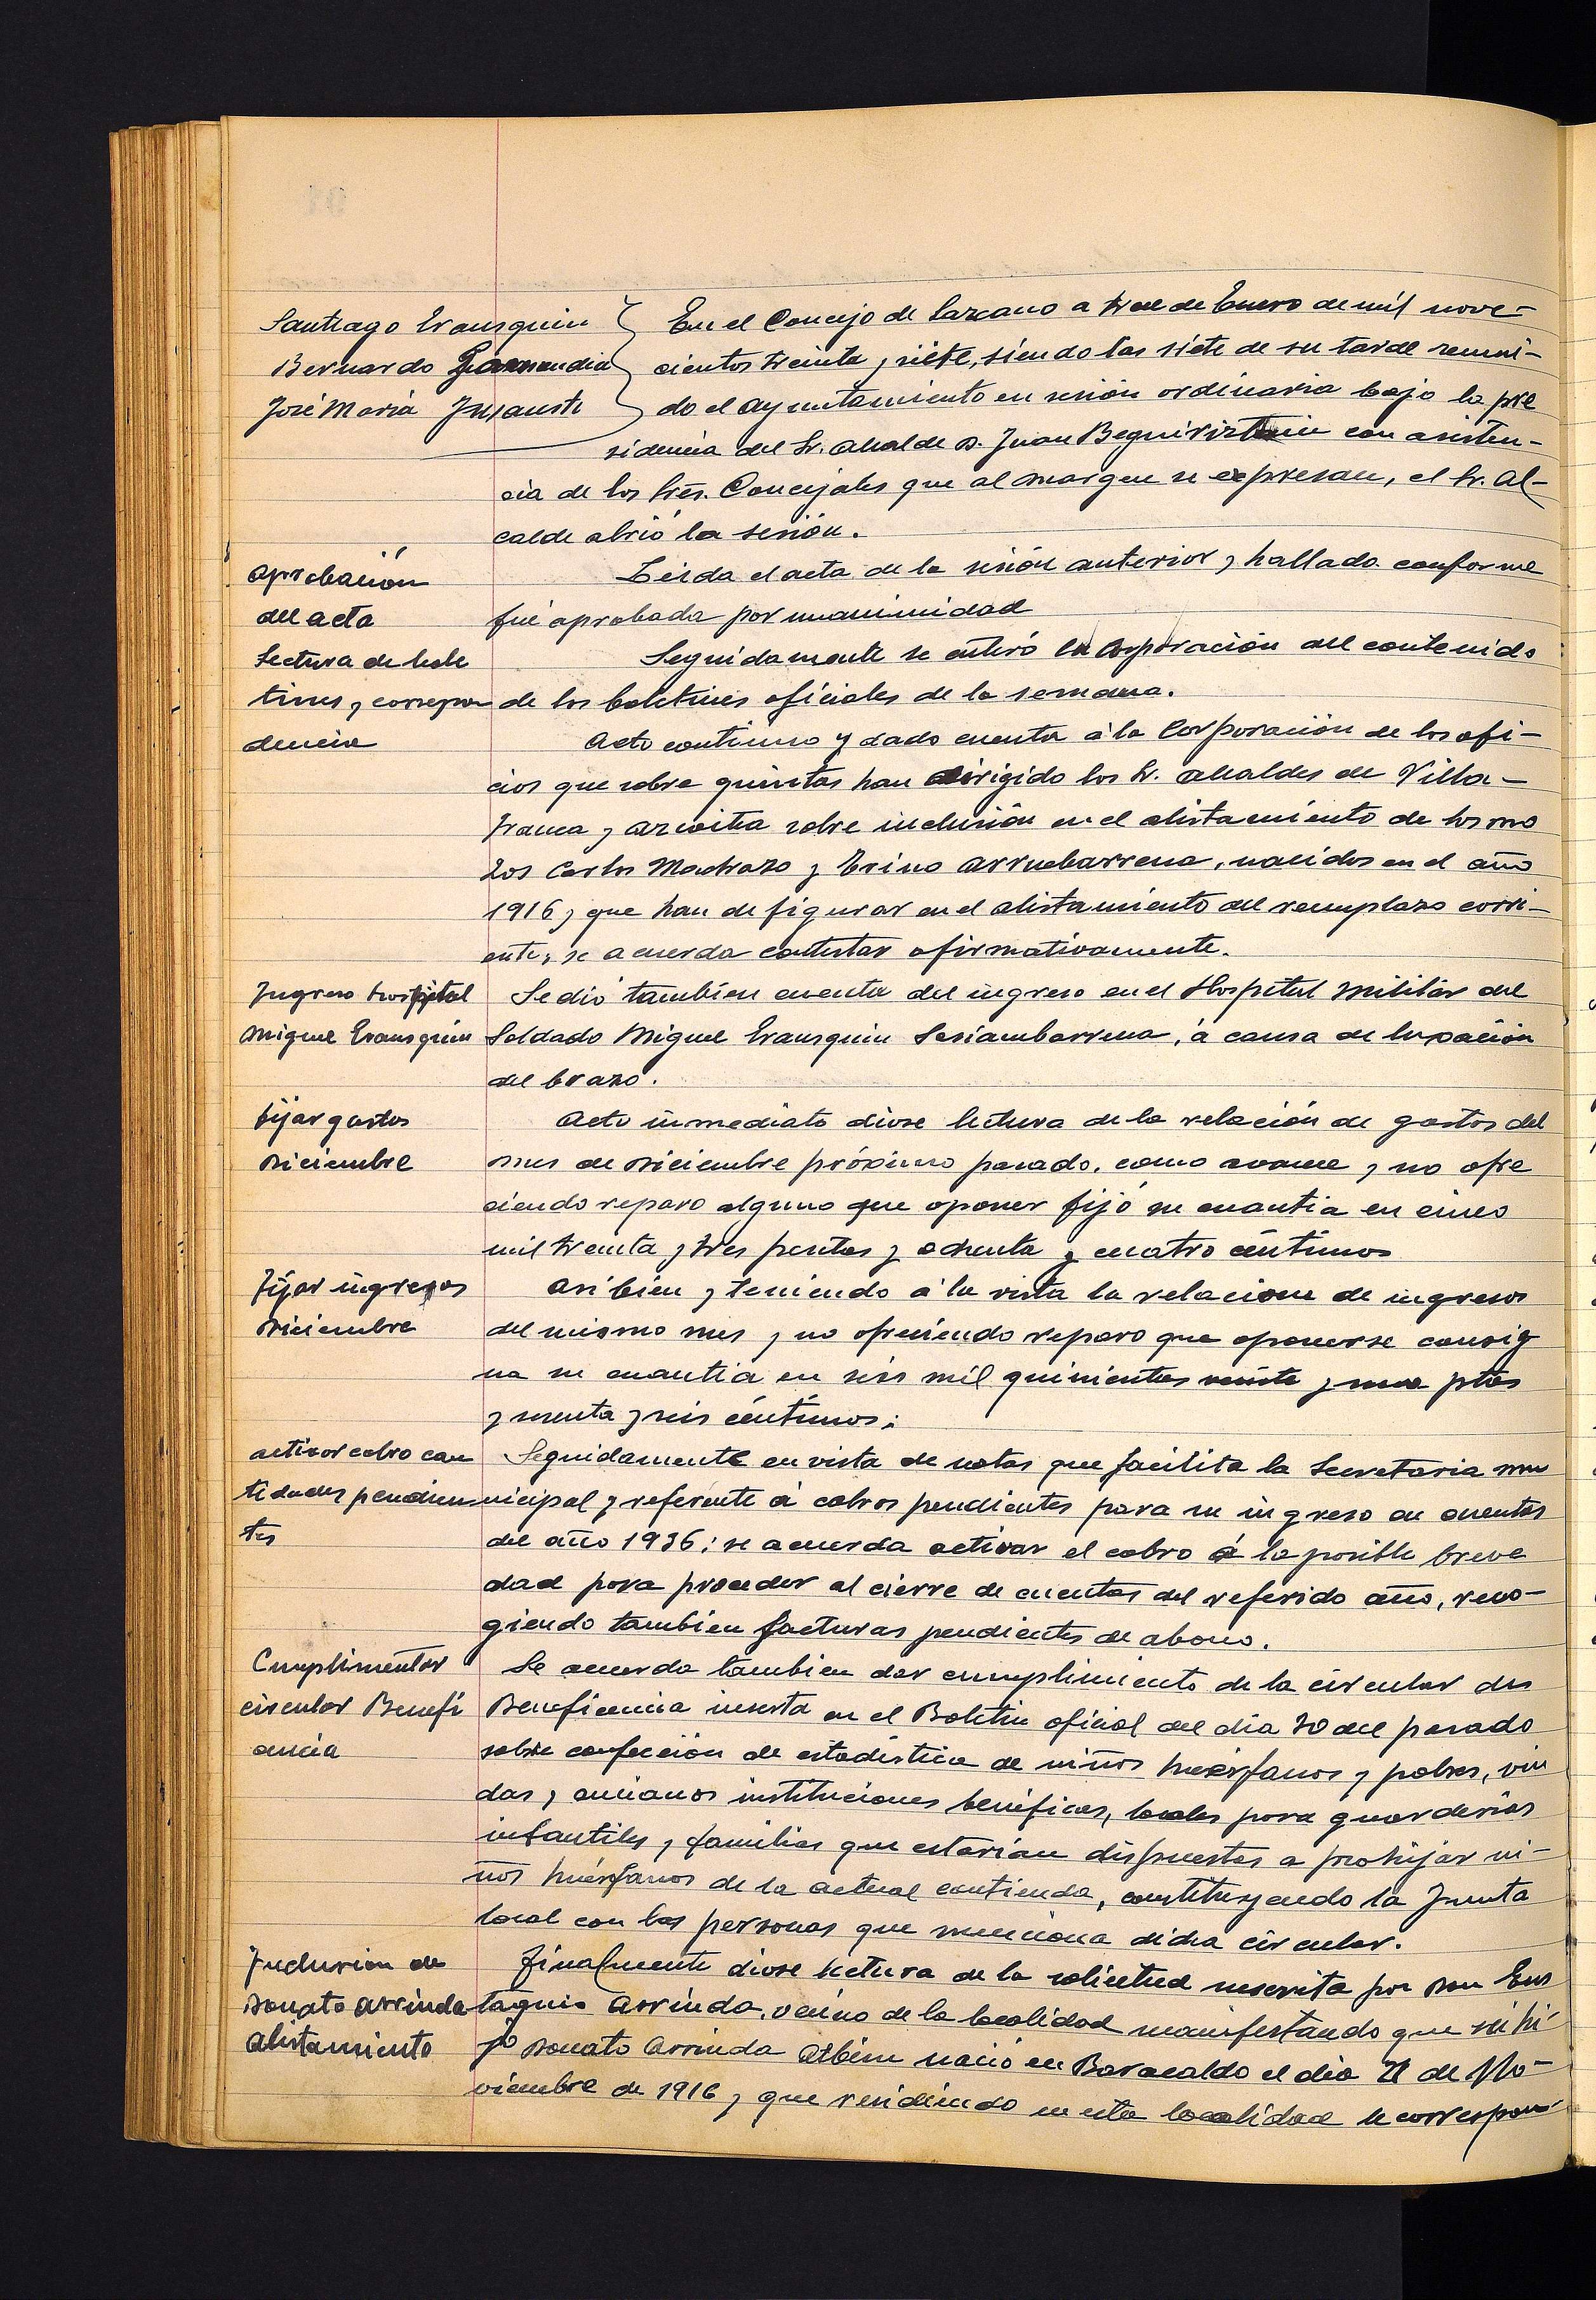 Santiago Erausquin
Bernardo Garmendia
José Maria Insausti
En el Concejo de Lazcano a trece de Enero de mil nove-
cientos treinta y siete, siendo las siete de su tarde reuni-
do el Ayuntamiento en sesión ordinaria bajo la pre
sidencia del Sr. Alcalde D. Juan Beguiristain con asisten-
cia de los Sres. Concejales que al margen se expresan, el Sr. Al-
calde abrió la sesión.
Aprobación
del acta
Leida el acta de la sesión anterior y hallada conforme
fué aprobada por unanimidad
Lectura de bole
tines y correspon
dencia
Seguidamente se enteró la Corporación del contenido
de los boletines oficiales de la semana.
Acto continuo y dado cuenta á la Corporación de los ofi-
cios que sobre quintas han dirigido los Sr. Alcaldes de Villa-
franca y Azcoitia sobre inclusión en el alistamiento de los mo
zos Carlos Madrazo y Trino Arruebarrena, nacidos en el año
1916 y que han de figurar en el alistamiento del reemplazo corri-
ente, se acuerda contestar afirmativamente.
Ingreso hospital
Miguel Erausquin
Se dió tambien cuenta del ingreso en el Hospital Militar del
Soldado Miguel Erausquin Lasciambarrena, á causa de luxación
del brazo.
Fijar gastos
Diciembre
Acto inmediato diose lectura de la relación de gastos del
mes de Diciembre próximo pasado, como avance y no ofre
ciendo reparo alguno que oponer fijó su cuantia en cinco
mil treinta y tres pesetas y ochenta y cuatro céntimos
Fijar ingresos
Diciembre
Asi bien y teniendo á la vista la relacione de ingresos
del mismo mes y no ofreciendo reparo que oponerse consig
na su cuantia en seis mil quinientas veinte y nueve ptas
y setenta y seis céntimos:
Activar cobro can
tidades pendien
tes
Seguidamente en vista de notas que facilita la Secretaria mu
nicipal y referente á cobros pendientes para su ingreso en cuentas
del año 1936; se acuerda activar el cobro á la posible breve
dad para proceder al cierre de cuentas del referido año, reco-
giendo tambien facturas pendientes de abono.
Cumplimentar
circular Benefi
cencia
Se acuerda tambien dar cumplimiento de la circular de
Beneficencia inserta en el Boletin oficial del dia 30 del pasado
sobre confección de estadistica de niños huérfanos y pobres, viu
das y ancianos instituciones benéficas, locales para guarderias
infantiles y familias que estarian dispuestas a prohijar ni-
ños huérfanos de la actual contienda, constituyendo la Junta
local con las personas que menciona dicha circular.
Inclusion de
Donato Arrinda
Alistamiento
Finalmente diose lectura de la solicitud suscrita por Don Eus
taquio Arrinda, vecino de la localidad manifestando que su hi-
jo Donato Arrinda Albisu nació en Baracaldo el dia 21 de No-
viembre de 1916 y que residiendo en esta localidad le correspon-